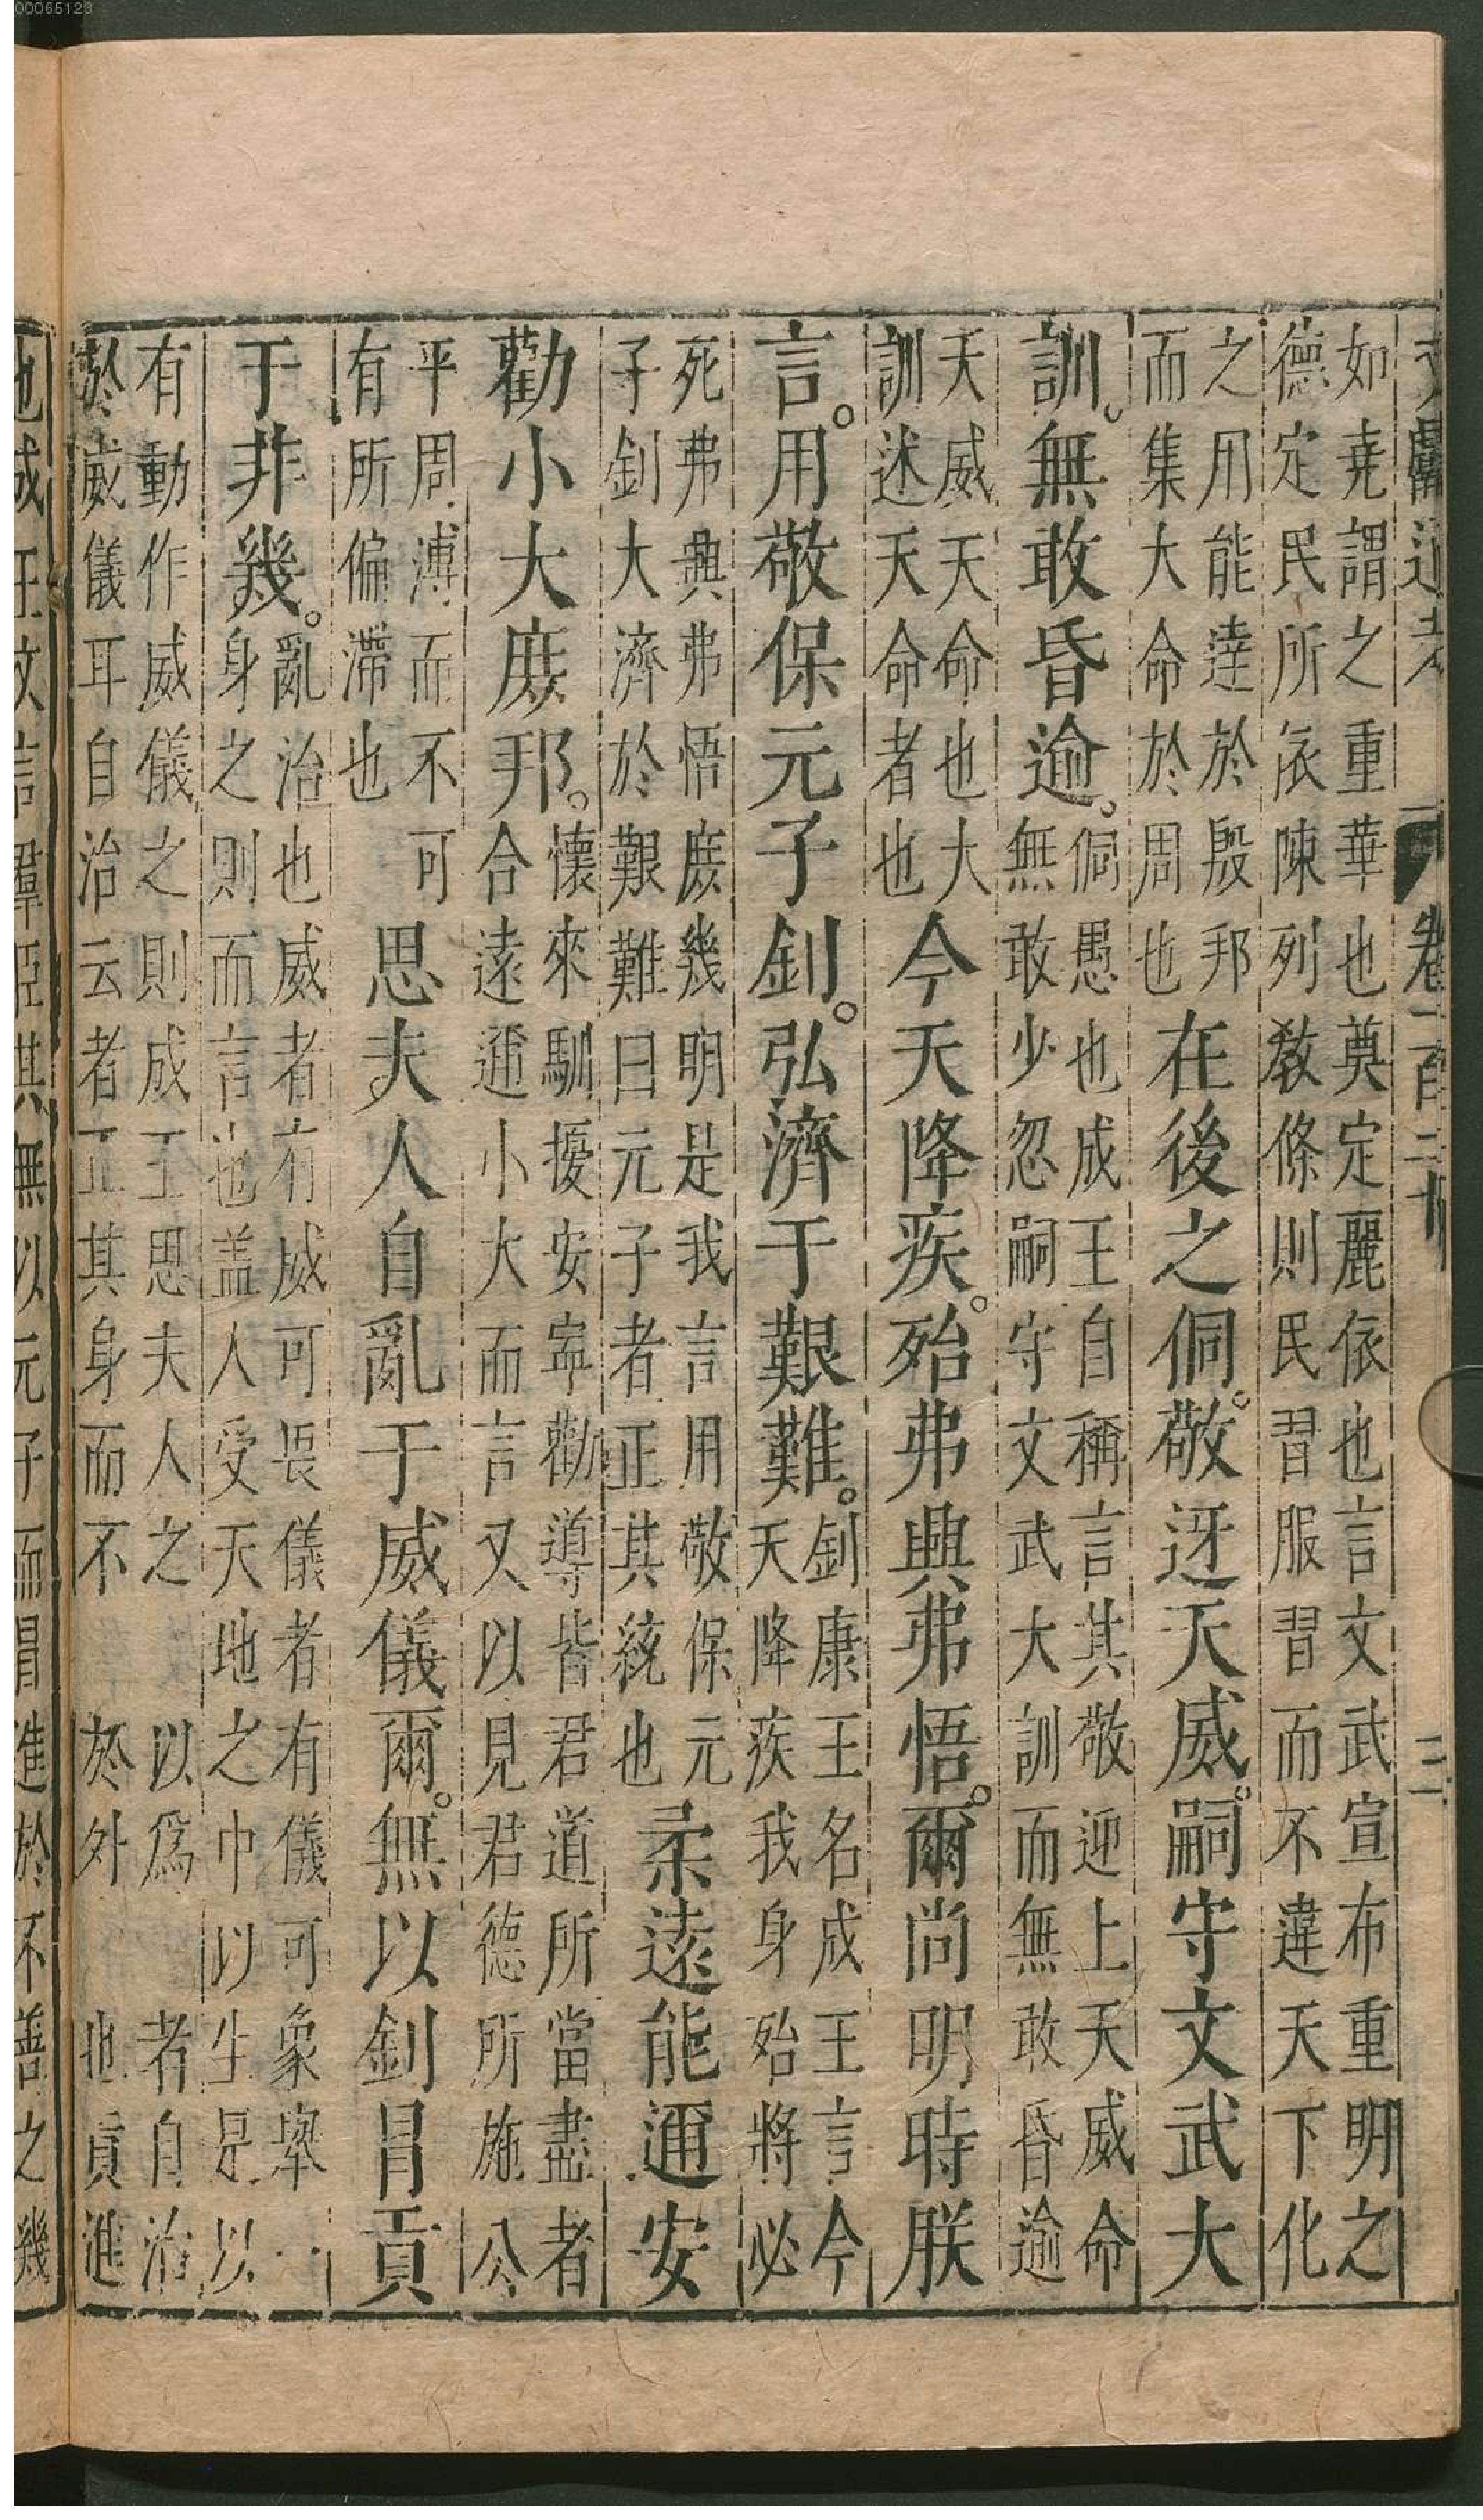 00065123
文獻通考 卷一百二十 三
如堯謂之重華也奠定麗依也言文武宣布重明之
德定民所依陳列教條則民習服習而不違天下化
之用能達於殷邦
而集大命於周也
在後之侗。敬迓天威。嗣守文武大
訓。無敢昏逾。
侗愚也成王自稱言其敬迎上天威命
無敢少忽嗣守文武大訓而無敢昏逾
天威天命也大
訓述天命者也
今天降疾。殆弗興弗悟。爾尚明時朕
言。用敬保元子釗。弘濟于艱難。
釗康王名成王言今
天降疾我身殆將必
死弗興弗悟庶幾明是我言用敬保元
子釗大濟於艱難曰元子者正其統也
柔遠能邇安
勸小大庶邦。
懷來馴擾安寧勸導皆君道所當盡者
合遠邇小大而言又以見君德所施公
平周溥而不可
有所偏滯也
思夫人自亂于威儀爾。無以釗冒貢
于非幾。
亂治也威者有威可畏儀者有儀可象舉一
身之則而言也盖人受天地之中以生是以
有動作威儀之則成王思夫人之以為者自治
於威儀耳自治云者正其身而不於外也貢進
也成王又言羣臣其無以元子而冒進於不善之幾